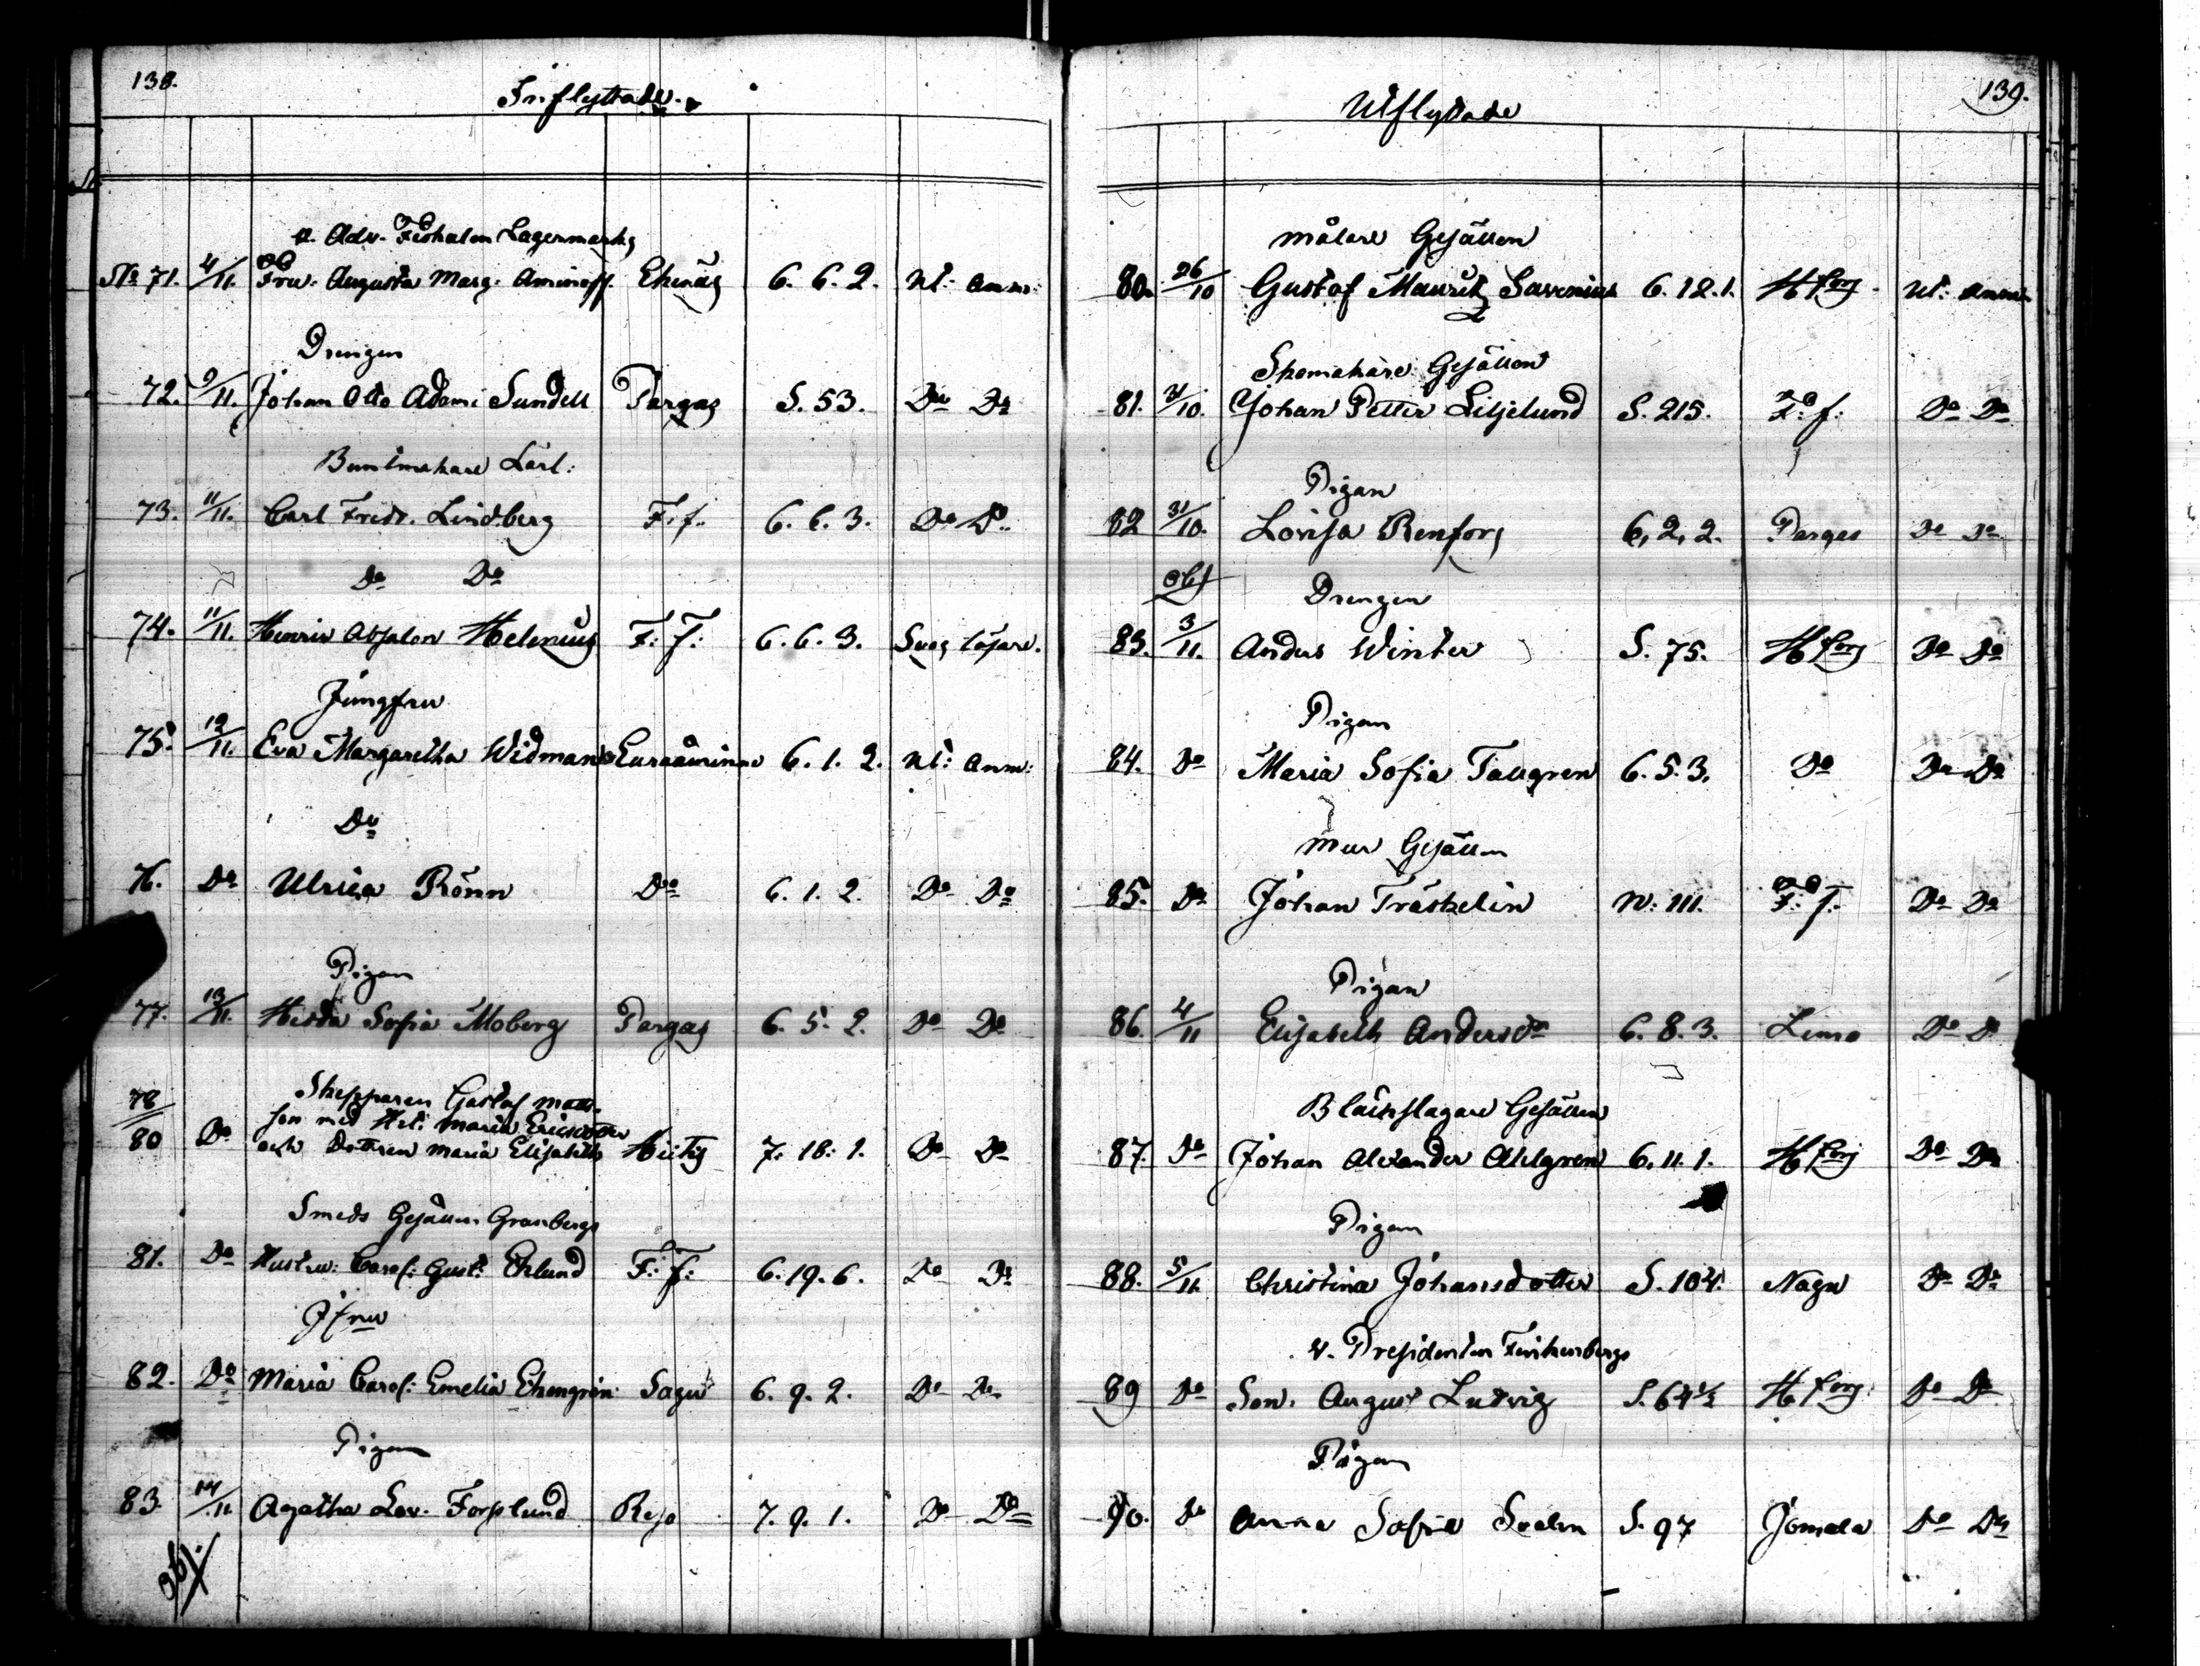 138.
Inflyttade.
v. Adv. Fiskalen Lagermarks
No 71. 4/11. Fru. Augusta Marg. Aminoff. Ekenäs 6. 6. 2. Nt: anm:
Drengen
72. 9/11. Johan Otto Adami Sundell Pargas S. 53. Do Do
Buntmakare Lärl:
73. 11/11. Carl Fredr. Lindberg F. f. 6. 6. 3. Do Do
Do Do
74. 11/11. Henric Absalon Helenius F: f: 6. 6. 3. Svag läsare.
Jungfru
75. 12/11. Eva Margaretha Widman Euraåminne 6. 1. 2. Nt: anm:
Do
76. Do Ulrica Rönn Do 6. 1. 2. Do Do
Pigan
77. 13/11. Hedda Sofia Moberg Pargas 6. 5. 2. Do Do
78 Skepparen Gustaf Matts-
son med Hust. Maria Ericsdotter
80 Do och Dottren Maria Elisabeth Hitis 7. 18. 1. Do Do
Smeds Gesällen Granbergs
81. Do Hustru: Carol: Gust: Eklund F: f: 6. 19. 6. Do Do
Jfru
82. Do Maria Carol: Emelia Ekengren Sagu 6. 9. 2. Do Do
Pigan
83. 14/11 Agatha Lov. Forslund Reso 7. 9. 1. Do Do
obs.
139.
Utflyttade
Målare Gesällen
80. 26/10 Gustaf Mauritz Savenius 6. 12. 1. Hfors Nt: anm:
Skomakare Gesällen
81. /10. Johan Petter Liljelund S. 215. F: f: Do Do
Pigan
82 31/10. Lovisa Renfors 6. 2. 2. Pargas Do Do
obs Drengen
83. 3/11. Anders Winter S. 75. Hfors Do Do
Pigan
84. Do Maria Sofia Tallgren 6. 5. 3. Do Do Do
Mur Gesällen
85. Do Johan Träskelin N: 111. F: f. Do Do
Pigan
86. 4/11 Elisabeth Andersdr 6. 8. 3. Lemo Do Do
Bläckslagare Gesällen
87. Do Johan Alexander Ahlgren 6. 11. 1. Hfors Do Do
Pigan
88. 5/11. Christina Johansdotter S. 104. Nagu Do Do
v. Presidenten Finkenbergs
89 Do Son. August Ludvig S. 64½ Hfors Do Do
Pigan
90. Do Anna Sofia S. 97 Jomala Do Do